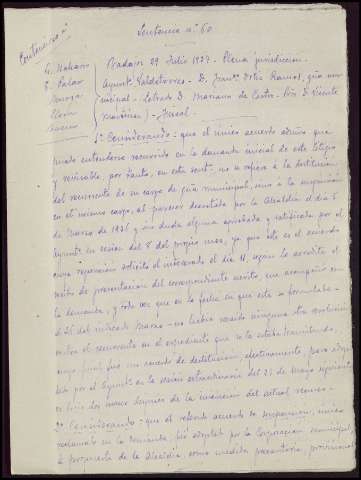 Sentencia nº 60
Contencioso
Badajoz 29 Julio 1927 - Plena jurisdicción
Ayuntº Valdetorres - D. Franco Ortiz Ramos, guía mu-
nicipal - Letrado D. Mariano de Castro - Pon. D. Vicente
- Fiscal.
1º Considerando: que el único acuerdo admi
entenderse recurrido en la demanda inicial de este litigio
y revisable, por tanto, en esta sentª no se refiere a la destitución
del recurrente de su cargo de guía municipal, sino a la suspensión
en el mismo cargo, al parecer decretada por la Alcaldía el día 6
de Marzo de 1926 y sin duda alguna aprobada y ratificada por el
Ayuntº en sesión del 8 del propio mes, ya que este es el acuerdo
cuya reposición solicitó el interesado el día 11 según lo acredita el
recibo de presentación del correspondiente escrito, que acompaña con
la demanda, y toda vez que en la fecha en que esta se formulaba -
el 26 del indicado Marzo - no había recaído ninguna otra resolución
contra el recurrente en el expediente que se le estaba tramitando,
acuerdo de destitución, efectivamente, fue adop
tado por el Ayuntº en la sesión extraordinaria del 23 de Mayo siguiente
dos meses después de la iniciación del actual recurso -
2º Considerando: que el referido acuerdo de suspensión, único
reclamado en la demanda, fue adoptado por la Corporación municipal
a propuesta de la Alcaldía, como medida precautoria, provisional